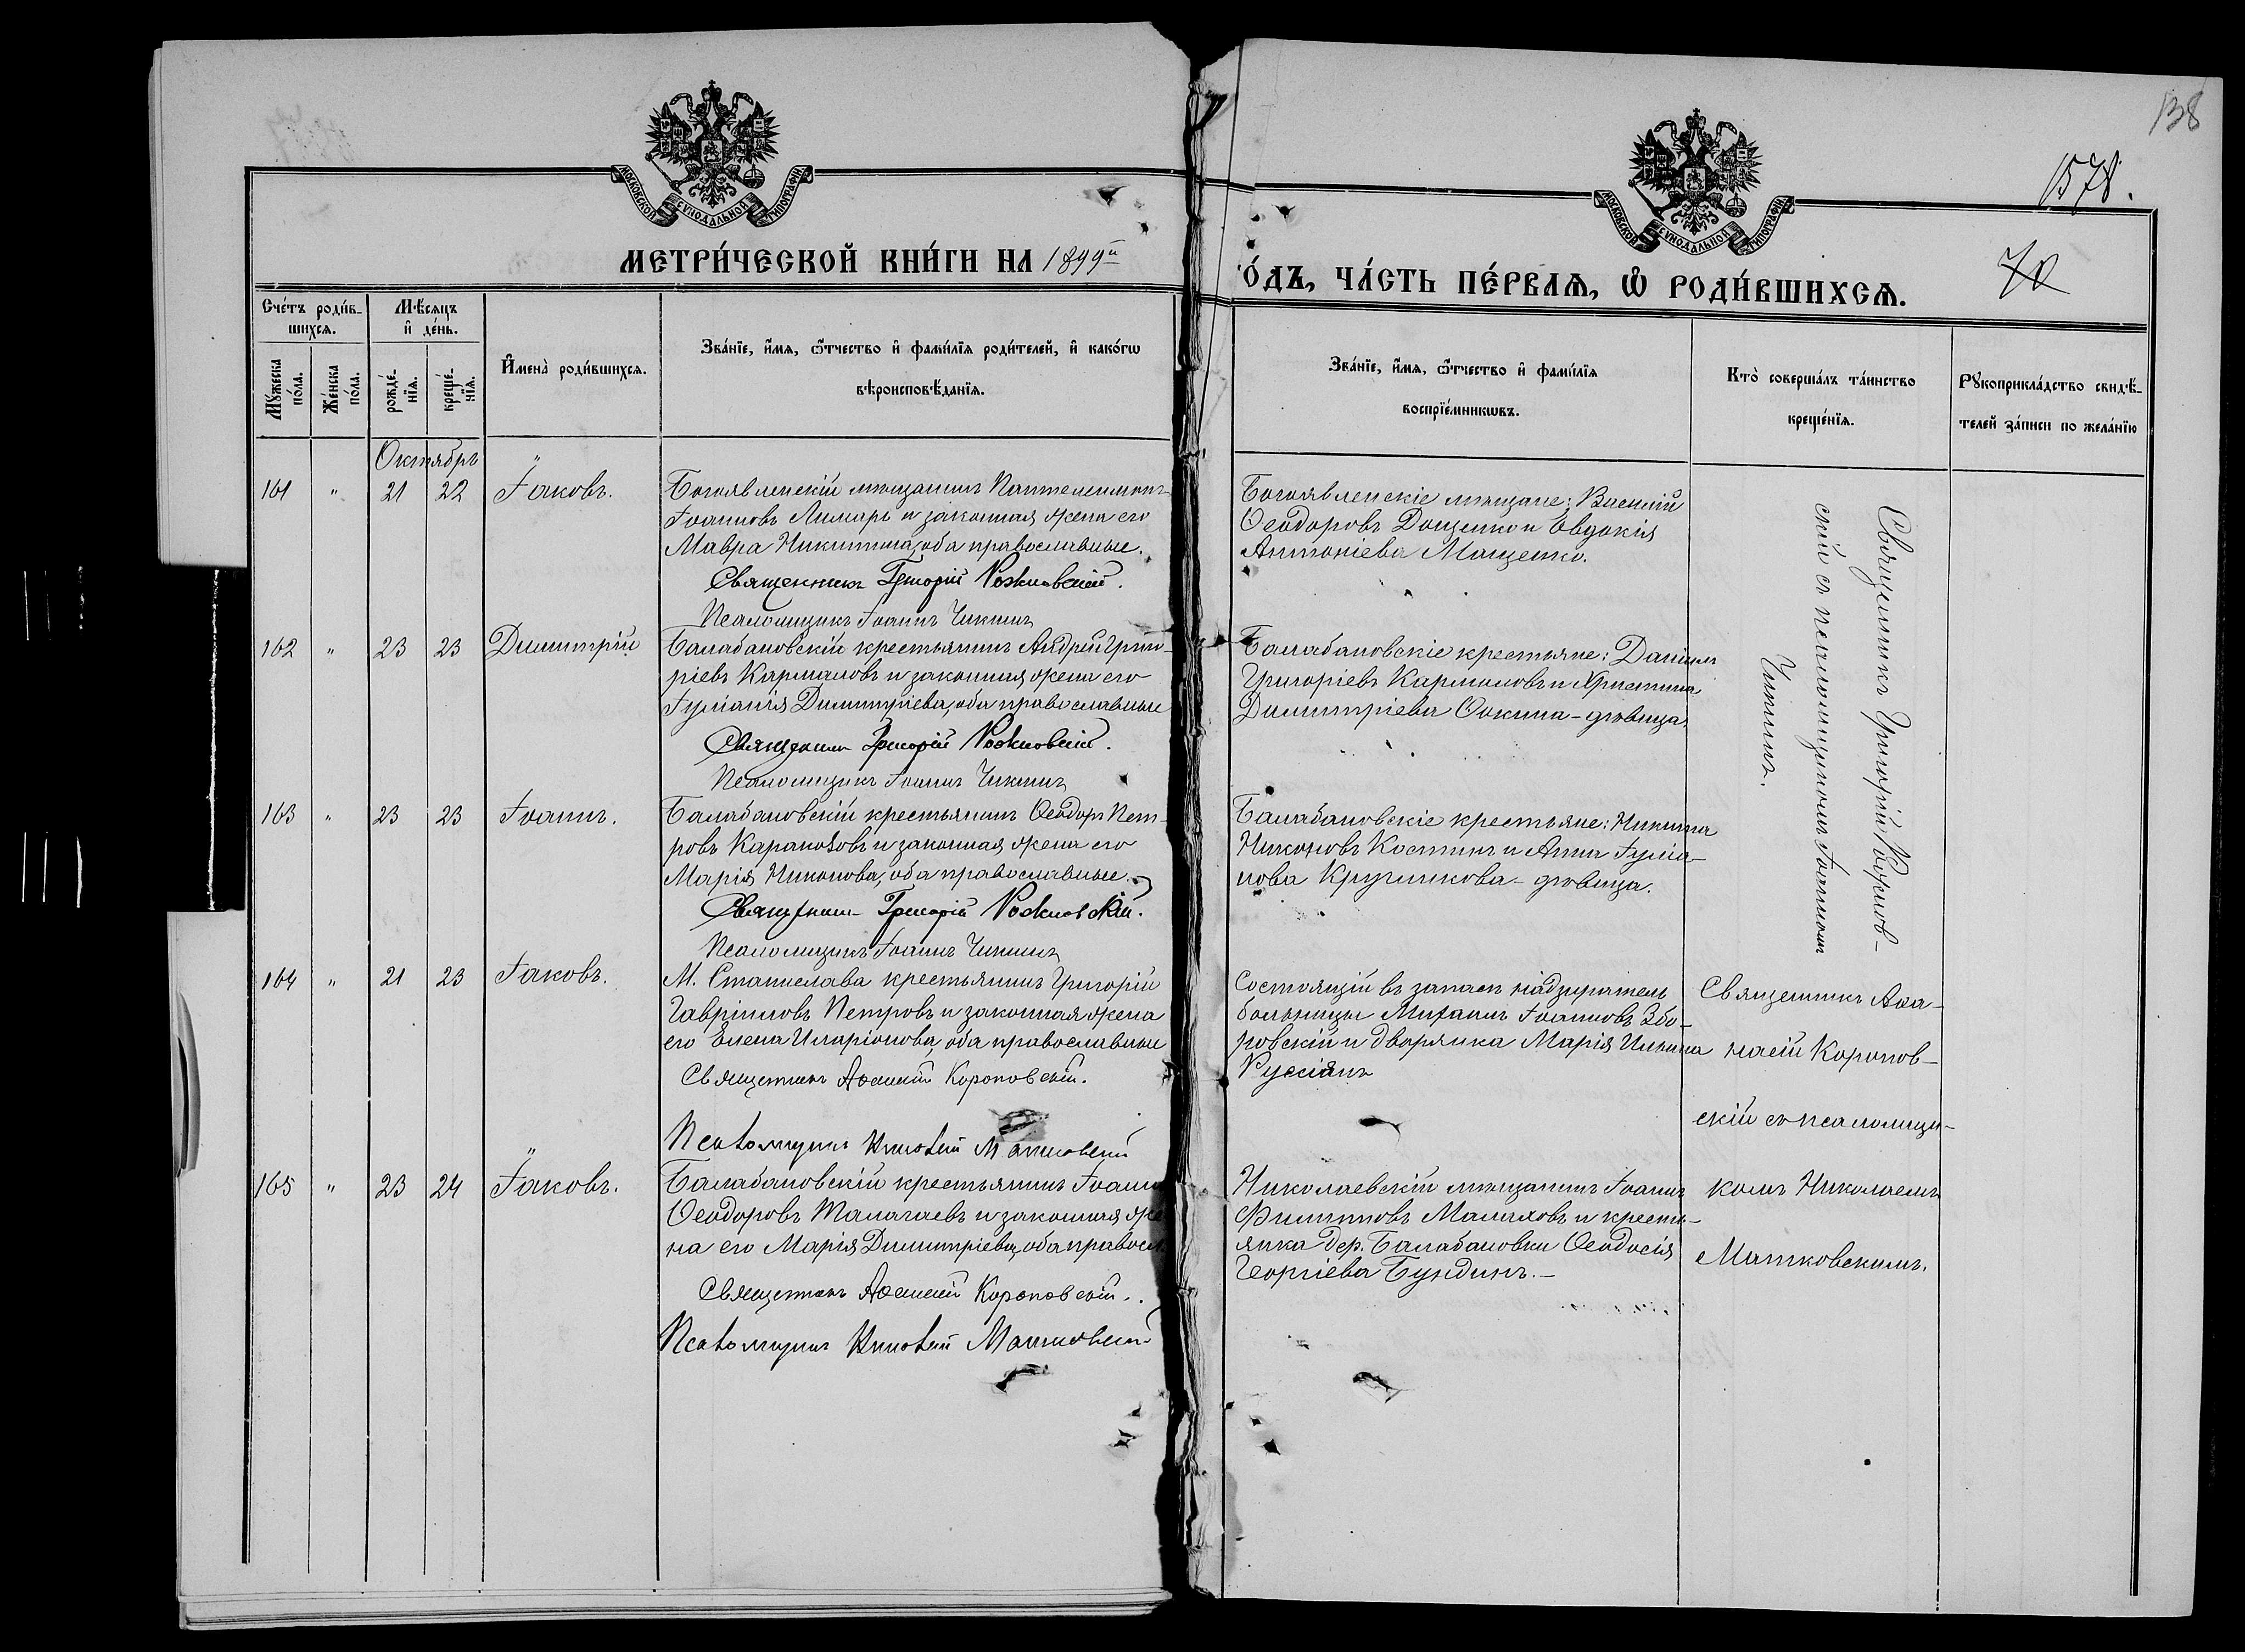 138
1578.
70
МОСКОВСКОЙ СУНОДАЛЬНОЙ ТИПОГРАФІИ
МОСКОВСКОЙ СУНОДАЛЬНОЙ ТИПОГРАФІИ
МЕТРИ́ЧЕСКОЙ КНИ́ГИ НА 1899й
О́ДЪ, ЧА́СТЬ ПЕ́РВАѦ, Ѡ҆ РОДИ́ВШИХСѦ.
Сче́тъ роди́в-
шихсѧ.
Мѣ́сяцъ
и҆ де́нь.
Мꙋ́жеска по́ла.
Же́нска по́ла.
рожде́-нїѧ.
креще́-нїѧ.
И҆мена̀ роди́вшихсѧ.
Зва́нїе, и҆́мѧ, ѻ҆́тчество и҆ фамі́лїѧ роди́телей, и҆ како́гѡ
вѣроисповѣ́данїѧ.
Зва́нїе, и҆́мѧ, ѻ҆́тчество и҆ фамі́лїѧ
воспрїе́мникѡвъ.
Кто̀ соверша́лъ та́инство
креще́нїѧ.
Рꙋкоприкла́дство свидѣ́-
телей за́писи по жела́нїю
Октябрь "
161 " 21 22 Іаковъ.
Богоявленскій мѣщанинъ Пантелеимонъ
Іоанновъ Лимарь и законная жена его
Мавра Никитина, оба православные.
Священникъ Григорій Рожновскій.
Псаломщикъ Іоаннъ Чикинъ
Богоявленскіе мѣщане: Василій
Ѳеодоровъ Доценко и Евдокія
Антоніева Маценко.
Священникъ Григорій Рожнов-
скій съ псаломщикомъ Іоанномъ
Чикинъ.
162 " 23 23 Димитрій
Балабановскій крестьянинъ Андрей Григо-
ріевъ Кармаловъ и законная жена его
Іуліанія Димитріева, оба православные
Священникъ Григорій Рожновскій.
Псаломщикъ Іоаннъ Чикинъ
Балабановскіе крестьяне: Даніилъ
Григоріевъ Кармаловъ и Христина
Димитріева Ѳокина - дѣвица.
163 " 23 23 Іоаннъ.
Балабановскій крестьянинъ Ѳеодоръ Пет-
ровъ Караколовъ и законная жена его
Марія Никонова, оба православные.
Священникъ Григорій Рожновскій.
Псаломщикъ Іоаннъ Чикинъ
Балабановскіе крестьяне: Никита
Никоновъ Костинъ и Анна Іуліа-
нова Кругликова - дѣвица.
164 " 21 23 Іаковъ.
М. Станислава крестьянинъ Григорій
Гавріиловъ Петровъ и законная жена
его Елена Иларіонова, оба православные
Священникъ Аѳанасій Короповскій.
Псаломщикъ Николай Матковскій
Состоящій въ запасѣ надзиратель
больницы Михаилъ Іоанновъ Збо-
ровскій и дворянка Марія Ильина
Руссіянъ
Священникъ Аѳа-
насій Коропов-
скій съ псаломщи-
комъ Николаемъ
Матковскимъ.
165 " 23 24 Іаковъ.
Балабановскій крестьянинъ Іоаннъ
Ѳеодоровъ Малагаевъ и законная же-
на его Марія Димитріева, оба правосл.
Священникъ Аѳанасій Короповскій.
Псаломщикъ Николай Матковскій
Николаевскій мѣщанинъ Іоаннъ
Филипповъ Малаховъ и кресть-
янка дер. Балабановки Ѳеодосія
Георгіева Бундинъ. -